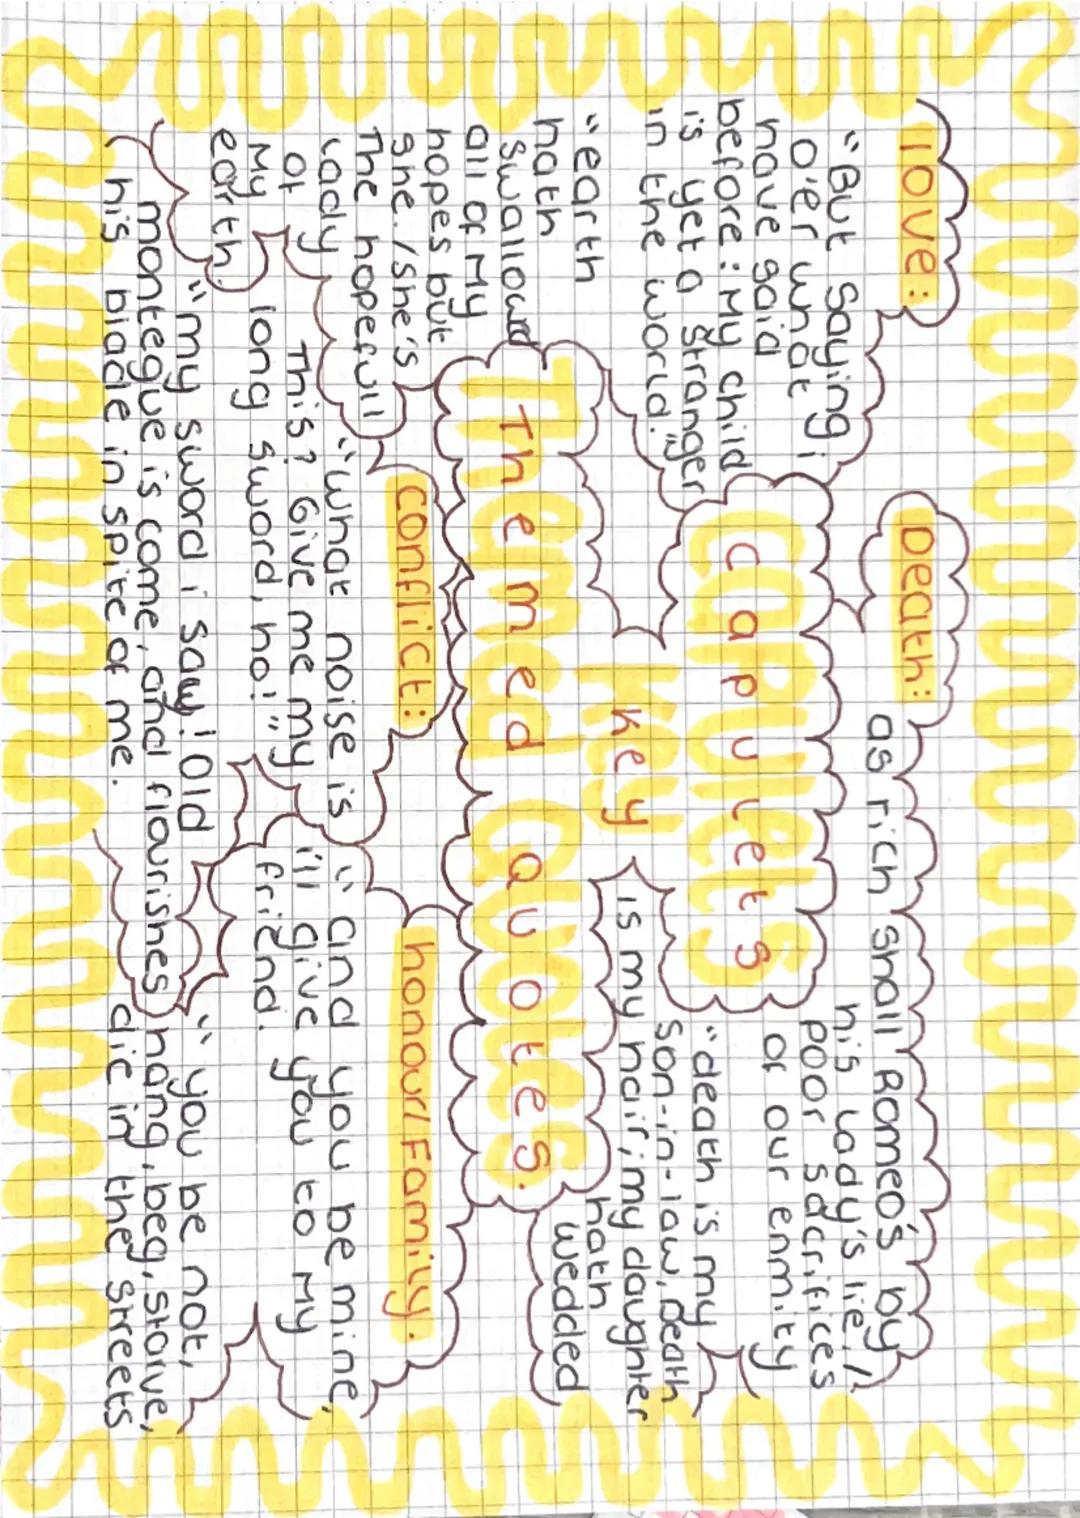 love:
"But saying
o'er what i
have said
before: My child
is yet a stranger
in the world."
"earth
hath
swallowed
all of My
hopes but
she./she's
The hopefull
Lady
of
My
earth.
Death:
as rich shall Romeo's by
his Lady's lie,/
poor sacrifices
of our enmity
"death is my
son-in-law, Death
is my hair; my daughter
hath
wedded
Capulets
Capulets
Key
Key
Themed Quotes
Themed Quotes.
conflict:
"what noise is
This? Give me my
long sword, ho!"
"my sword i saw! Old
montegue is come, and flourishes
his blade in spite of me.
honour/Family.
"and you be mine,
i'll give you to My
friend.
"you be not,
hang, beg, starve,
die in the streets